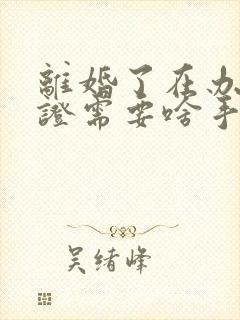 離婚了在办
證需要啥手
吴绪峰